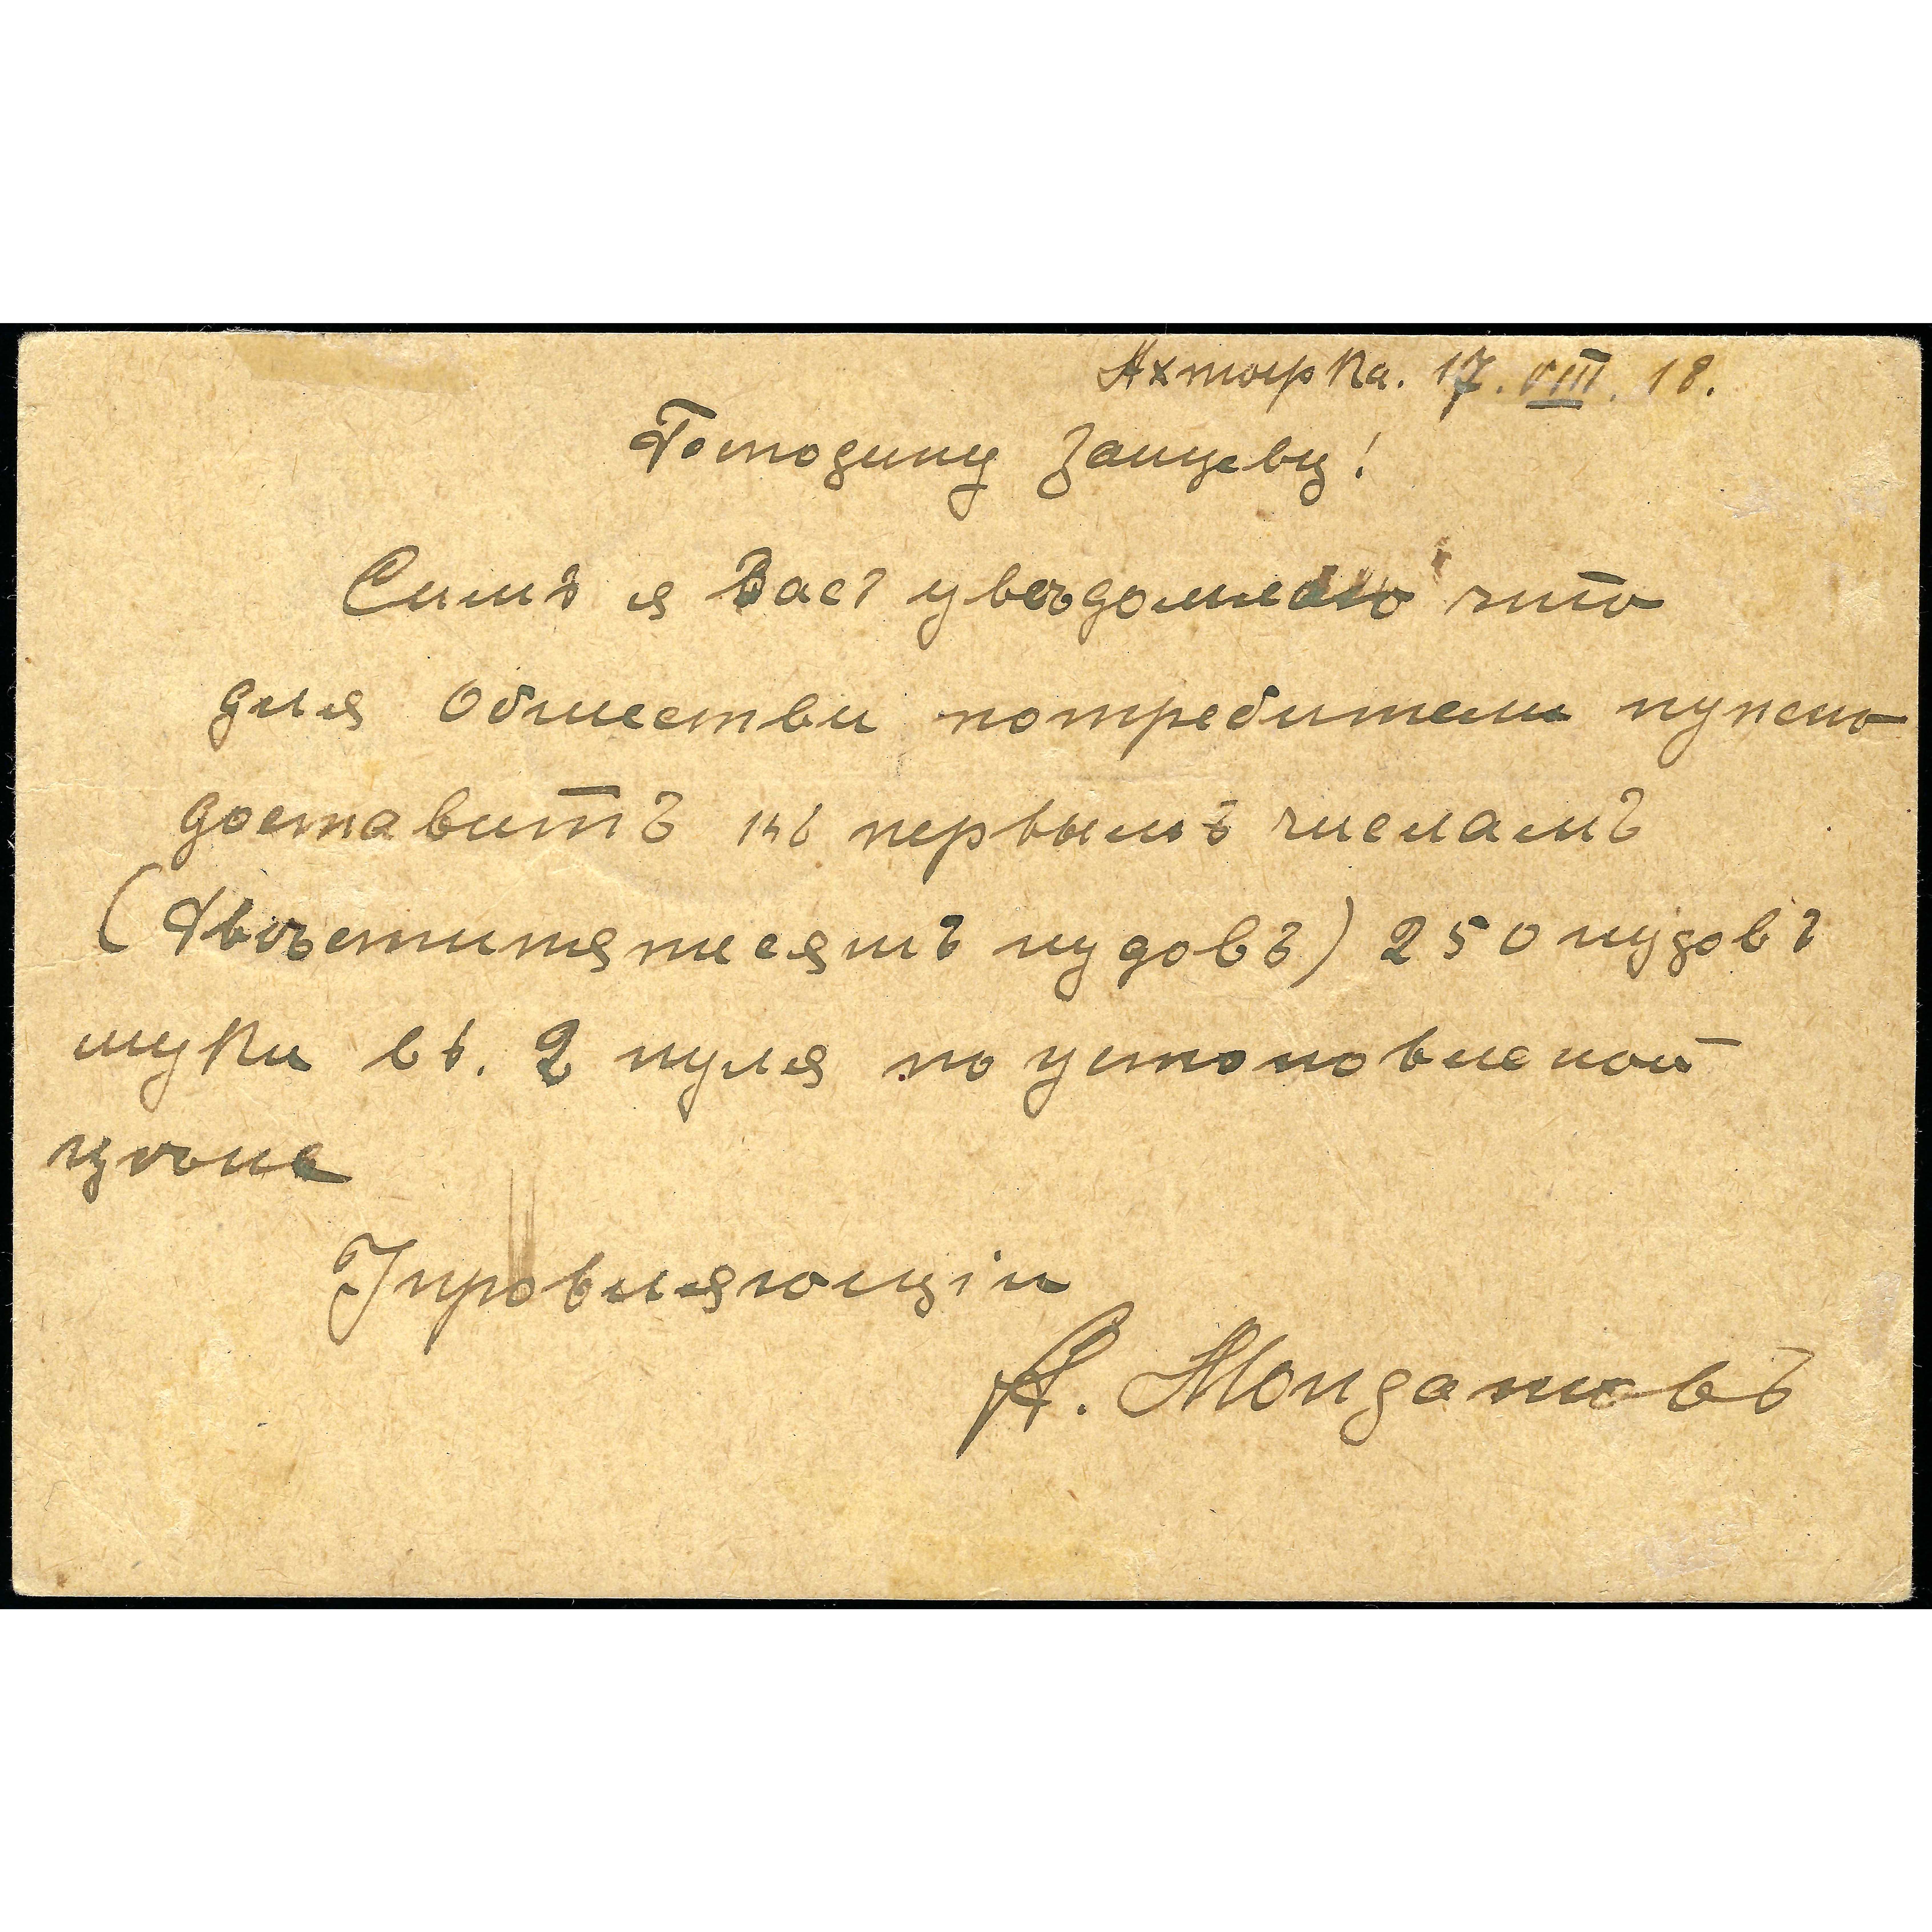 Ахтырка. 17. VIII. 18.
Господину Зайцеву!
Симъ я Васъ увѣдомляю что
для Обшества потребители нужно
доставитъ къ первымъ числамъ
(Двѣстипятесятъ пудовъ) 250 пудовъ
муки въ. 2 нуля по установленой
цѣне
Упровляющіи
А.